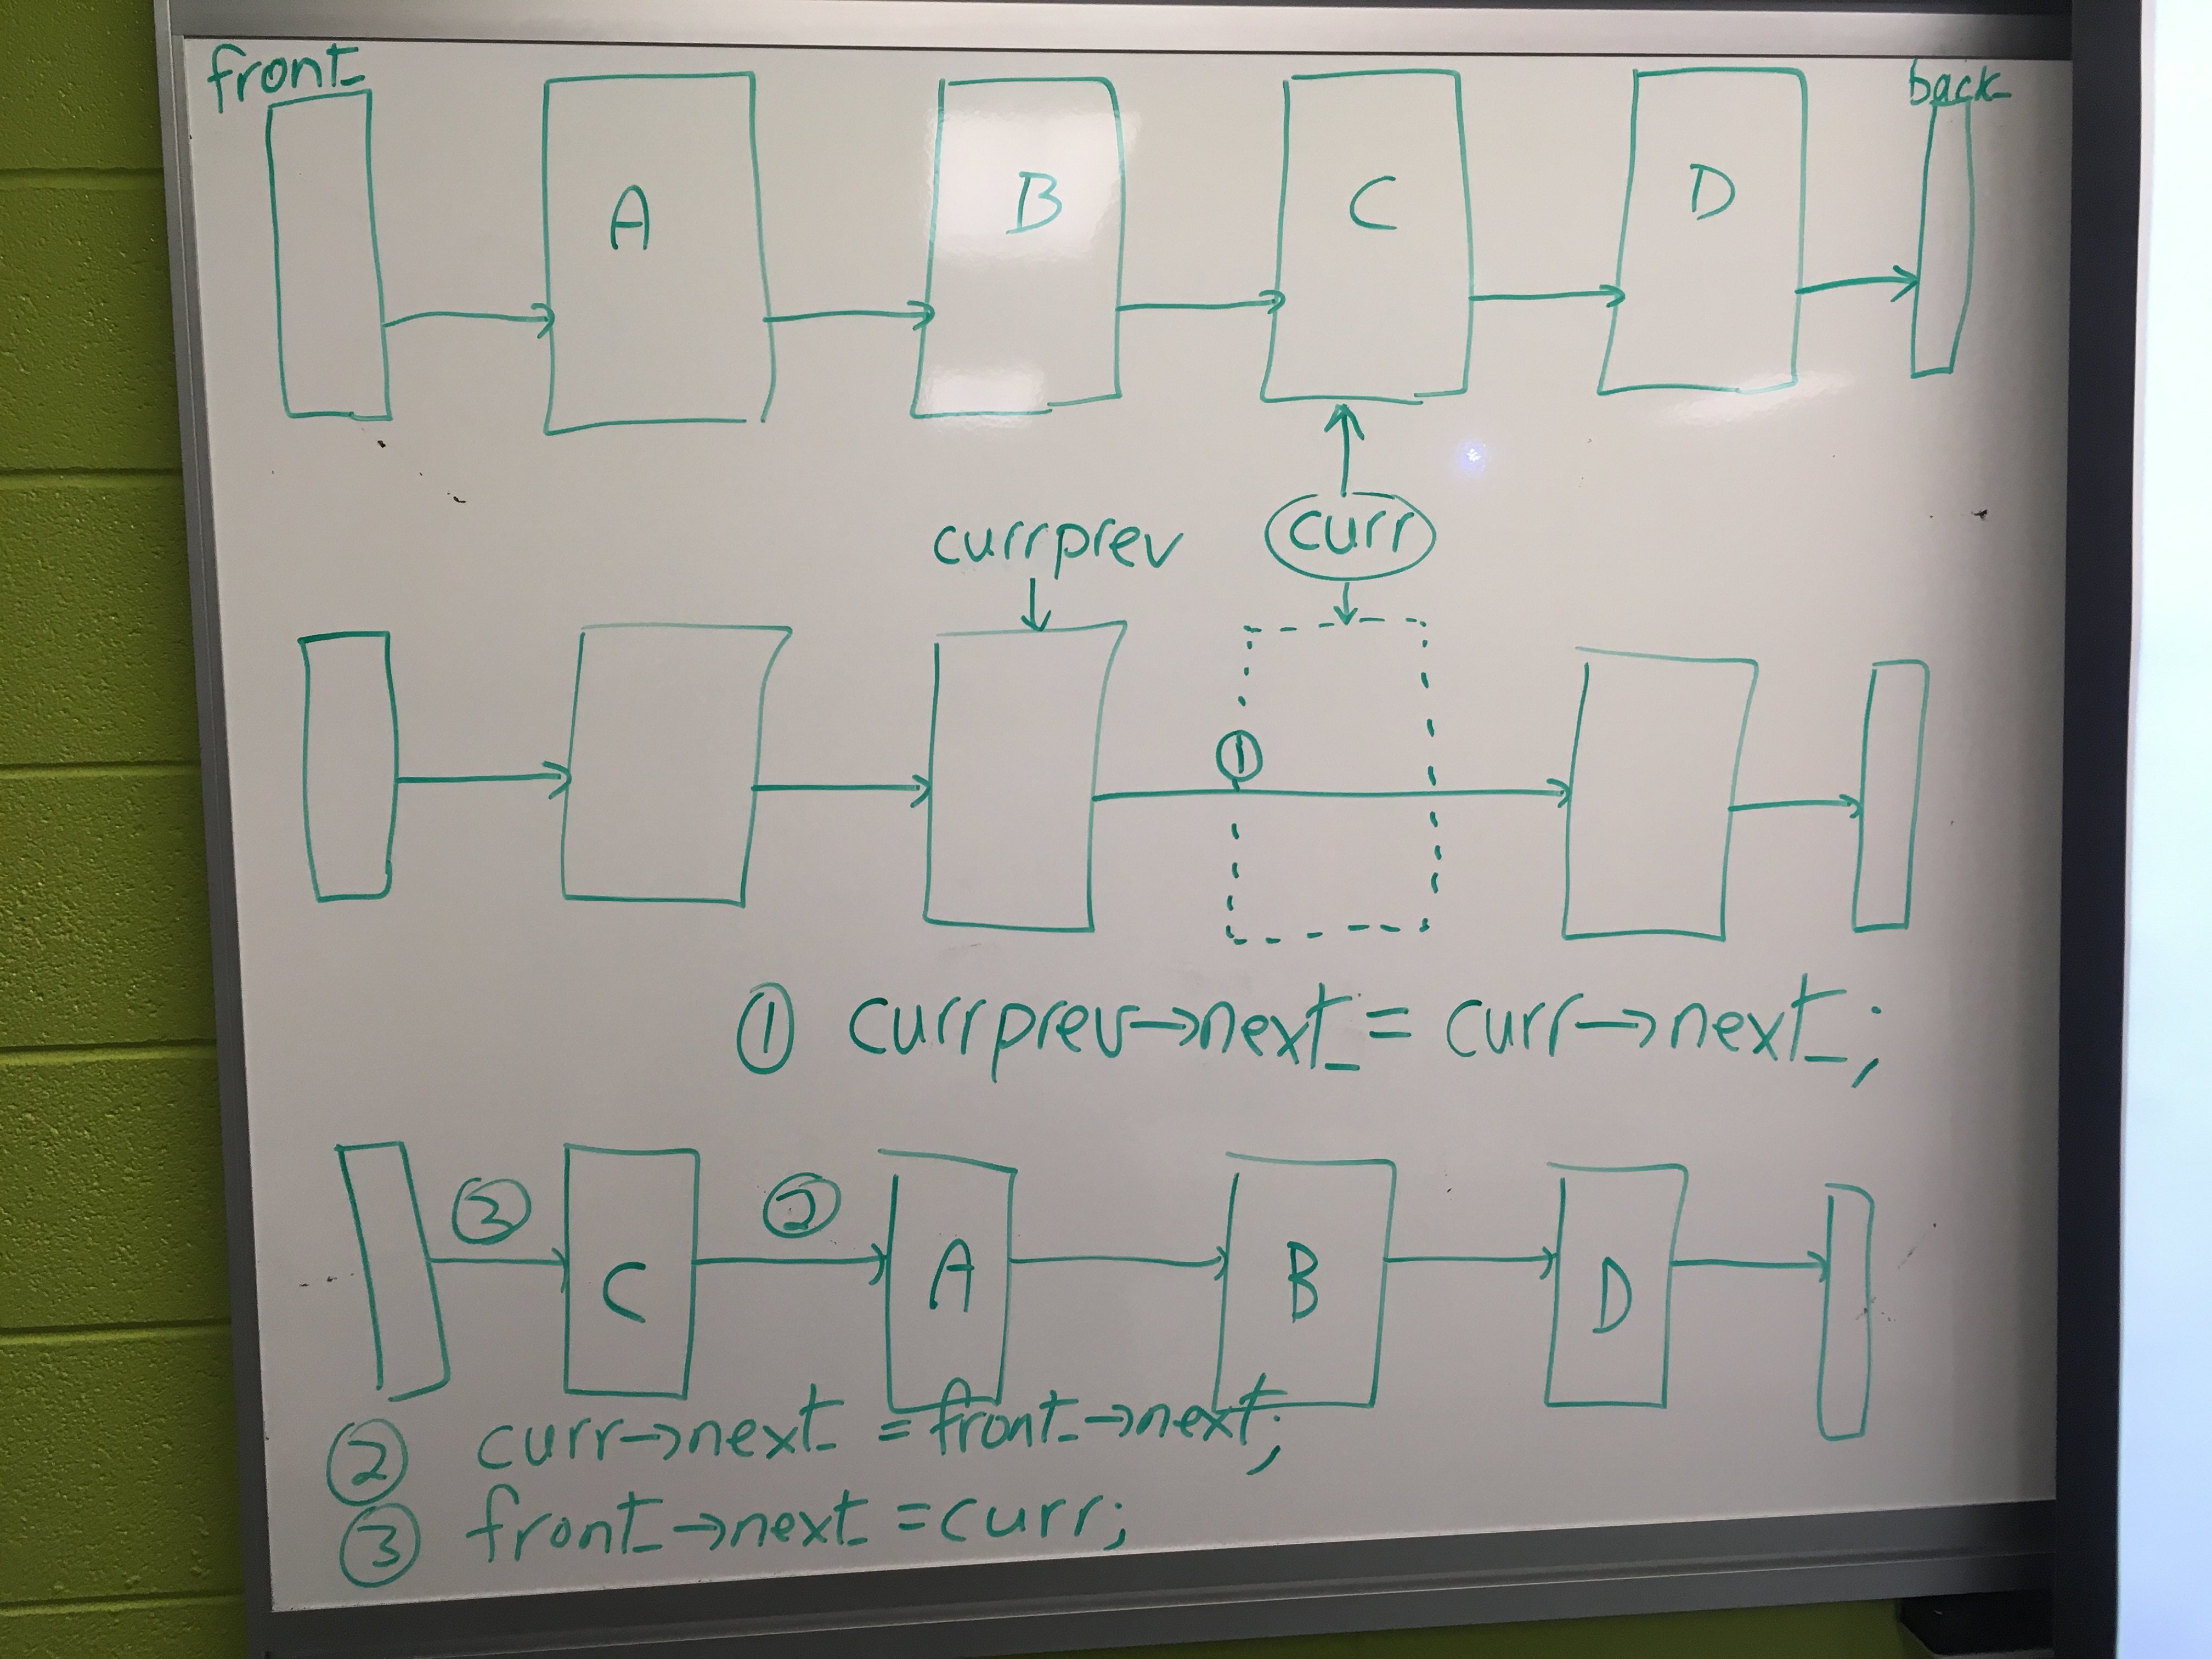 front_ back_
A B C D
currprev curr
①
① currprev→next_ = curr→next_;
③ ②
C A B D
② curr→next_ = front_→next_;
③ front_→next_ = curr;